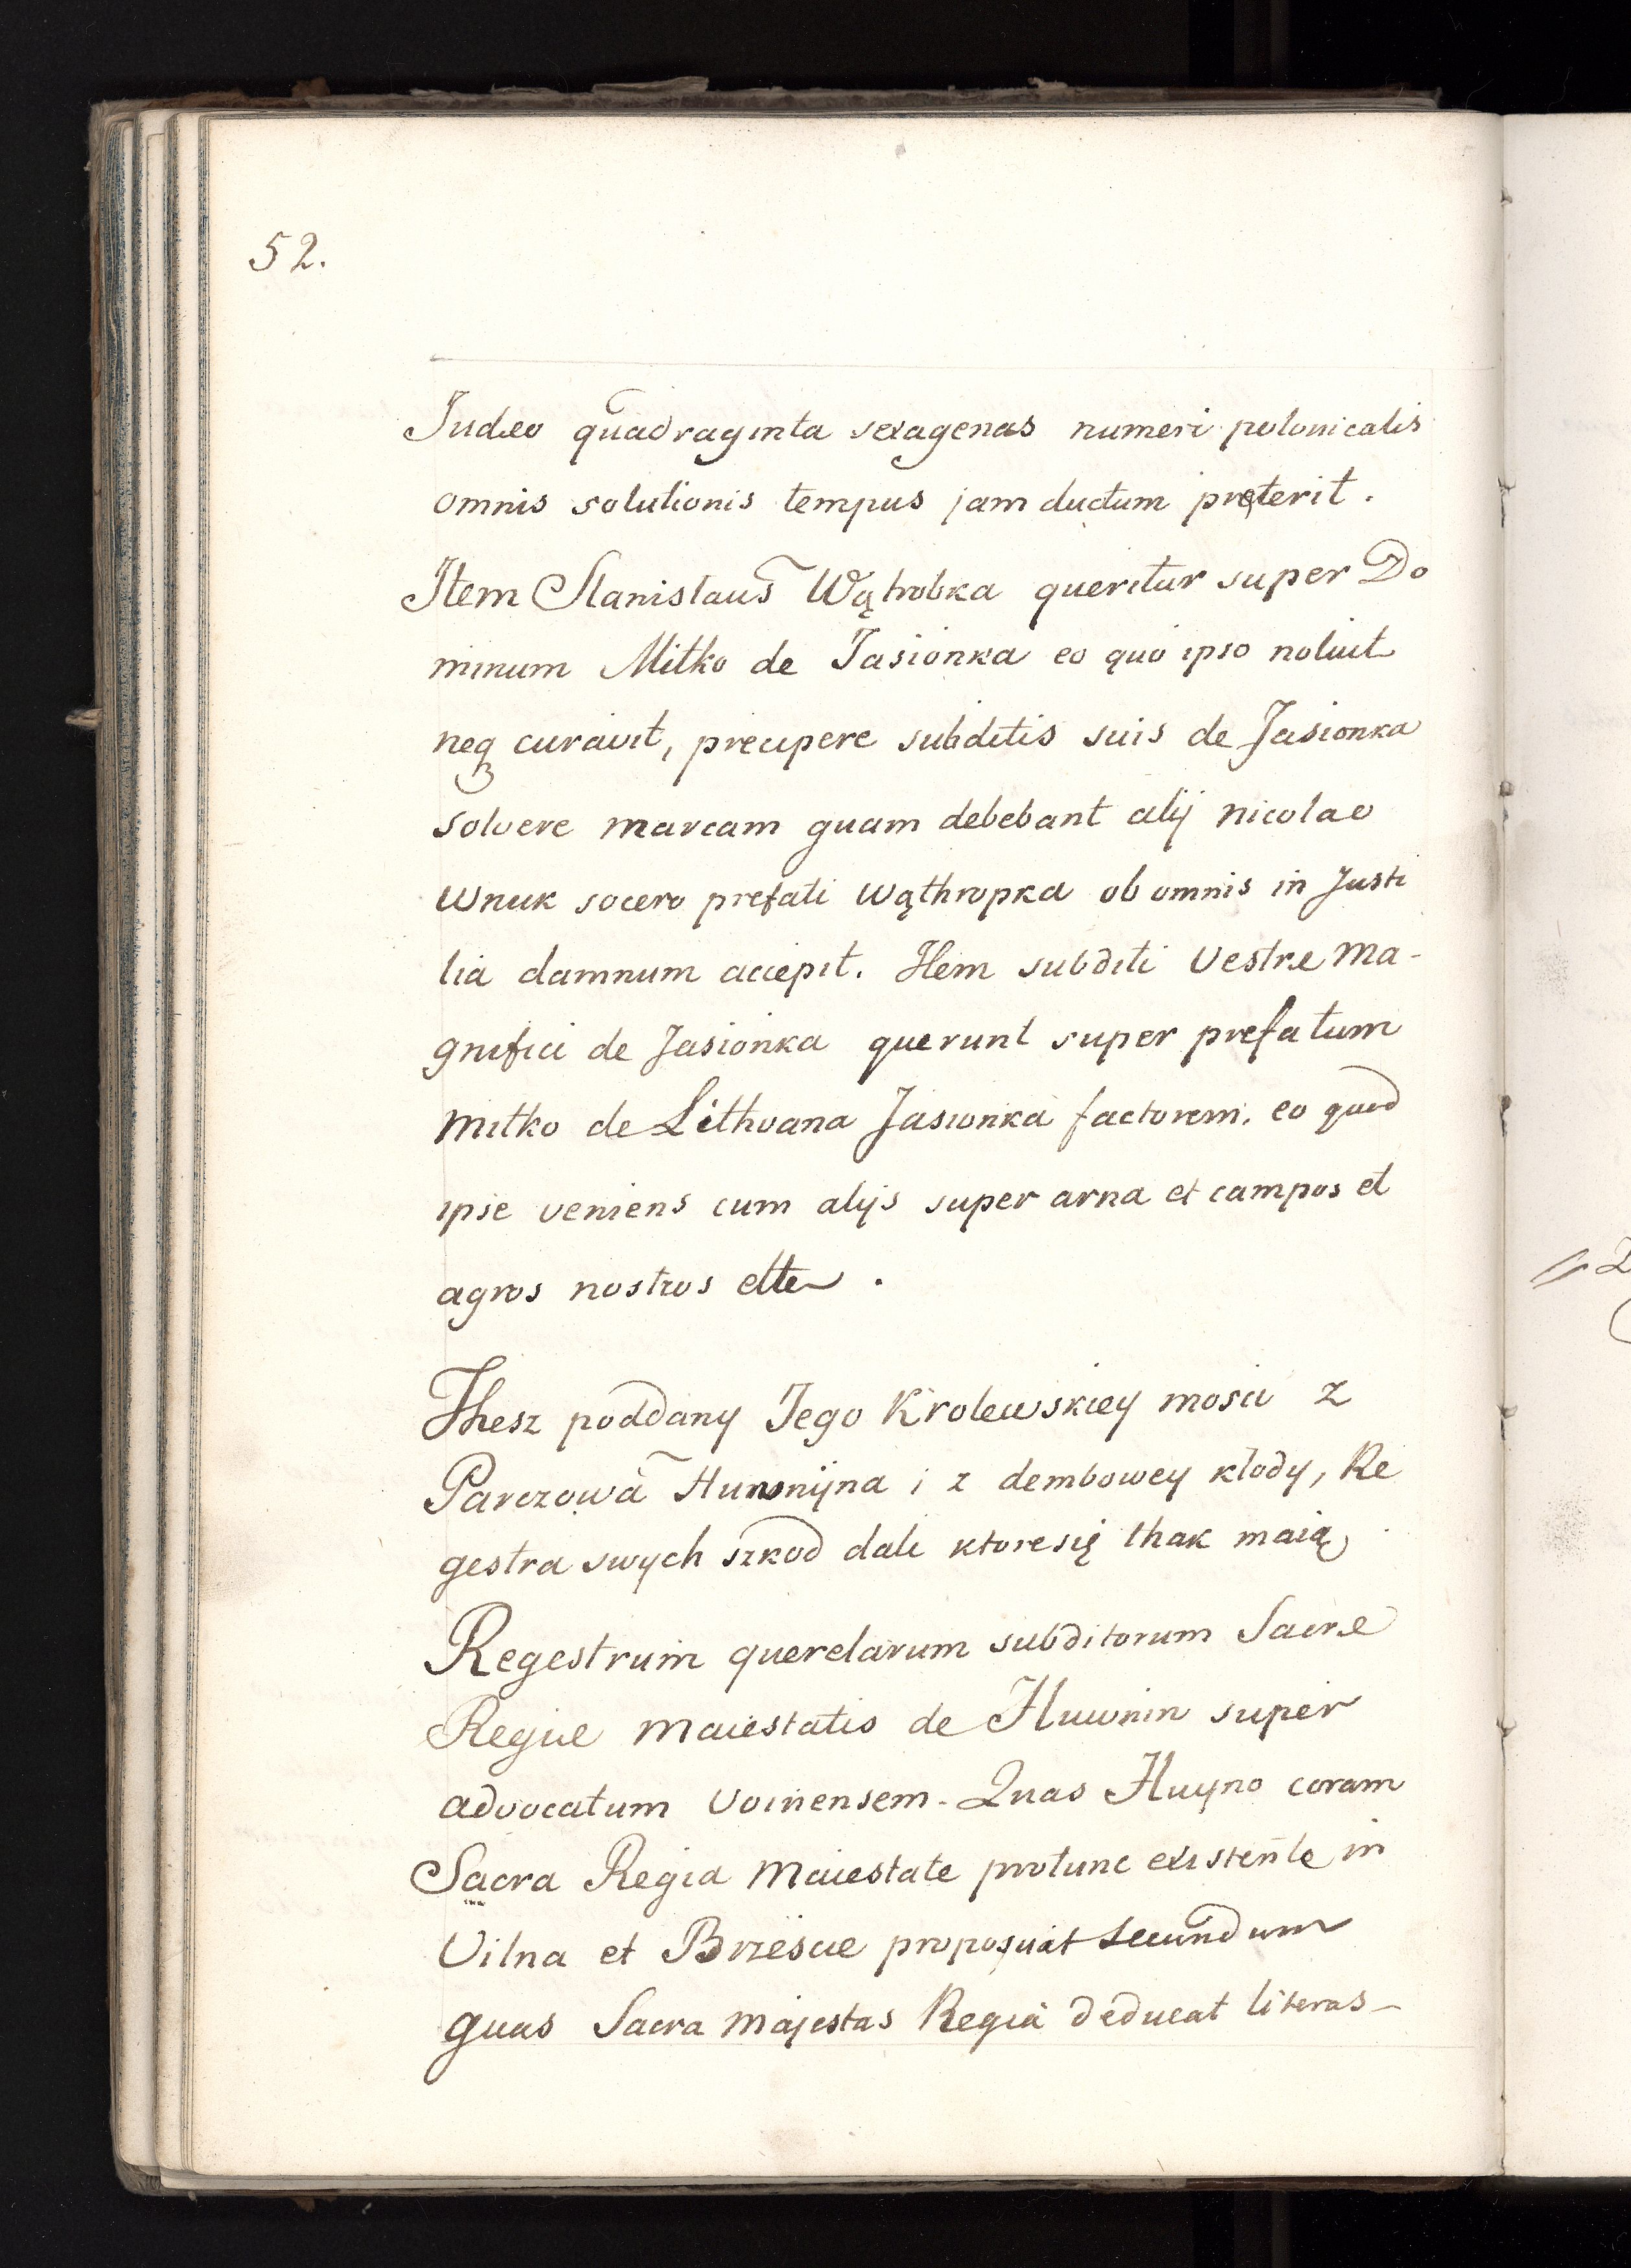 52.
Judeo quadraginta sexagenas numeri polonicalis
omnis solutionis tempus jam ductum pręterit.
Item Stanislaus Wątrobka queritur super Do
minum Mitko de Jasionka eo quo ipso noluit
neq curavit, precipere subditis suis de Jasionka
solvere marcam quam debebant alij nicolao
Wnuk socero prefati Wąthropka ob omnis in Justi
tia damnum accepit. Item subditi Vestre Ma-
gnifici de Jasionka querunt super prefatum
Mitko de Lithvana Jasionka factorem. eo quod
ipse veniens cum alijs super arna et campos et
agros nostros
Thesz poddany Jego Krolewskiey mosci z
Parczowa i z dembowey kłody, Re
gestra swych szkod dali ktore się thak maią
Regestrum querelarum subditorum Sacre
Regie Maiestatis de Huwnin super
advocatum Voinensem. Quas Huyno coram
Sacra Regia Maiestate protunc existente in
Vilna et Brzescie proposuit secundum
quas Sacra Majestas Regia deducat literas-